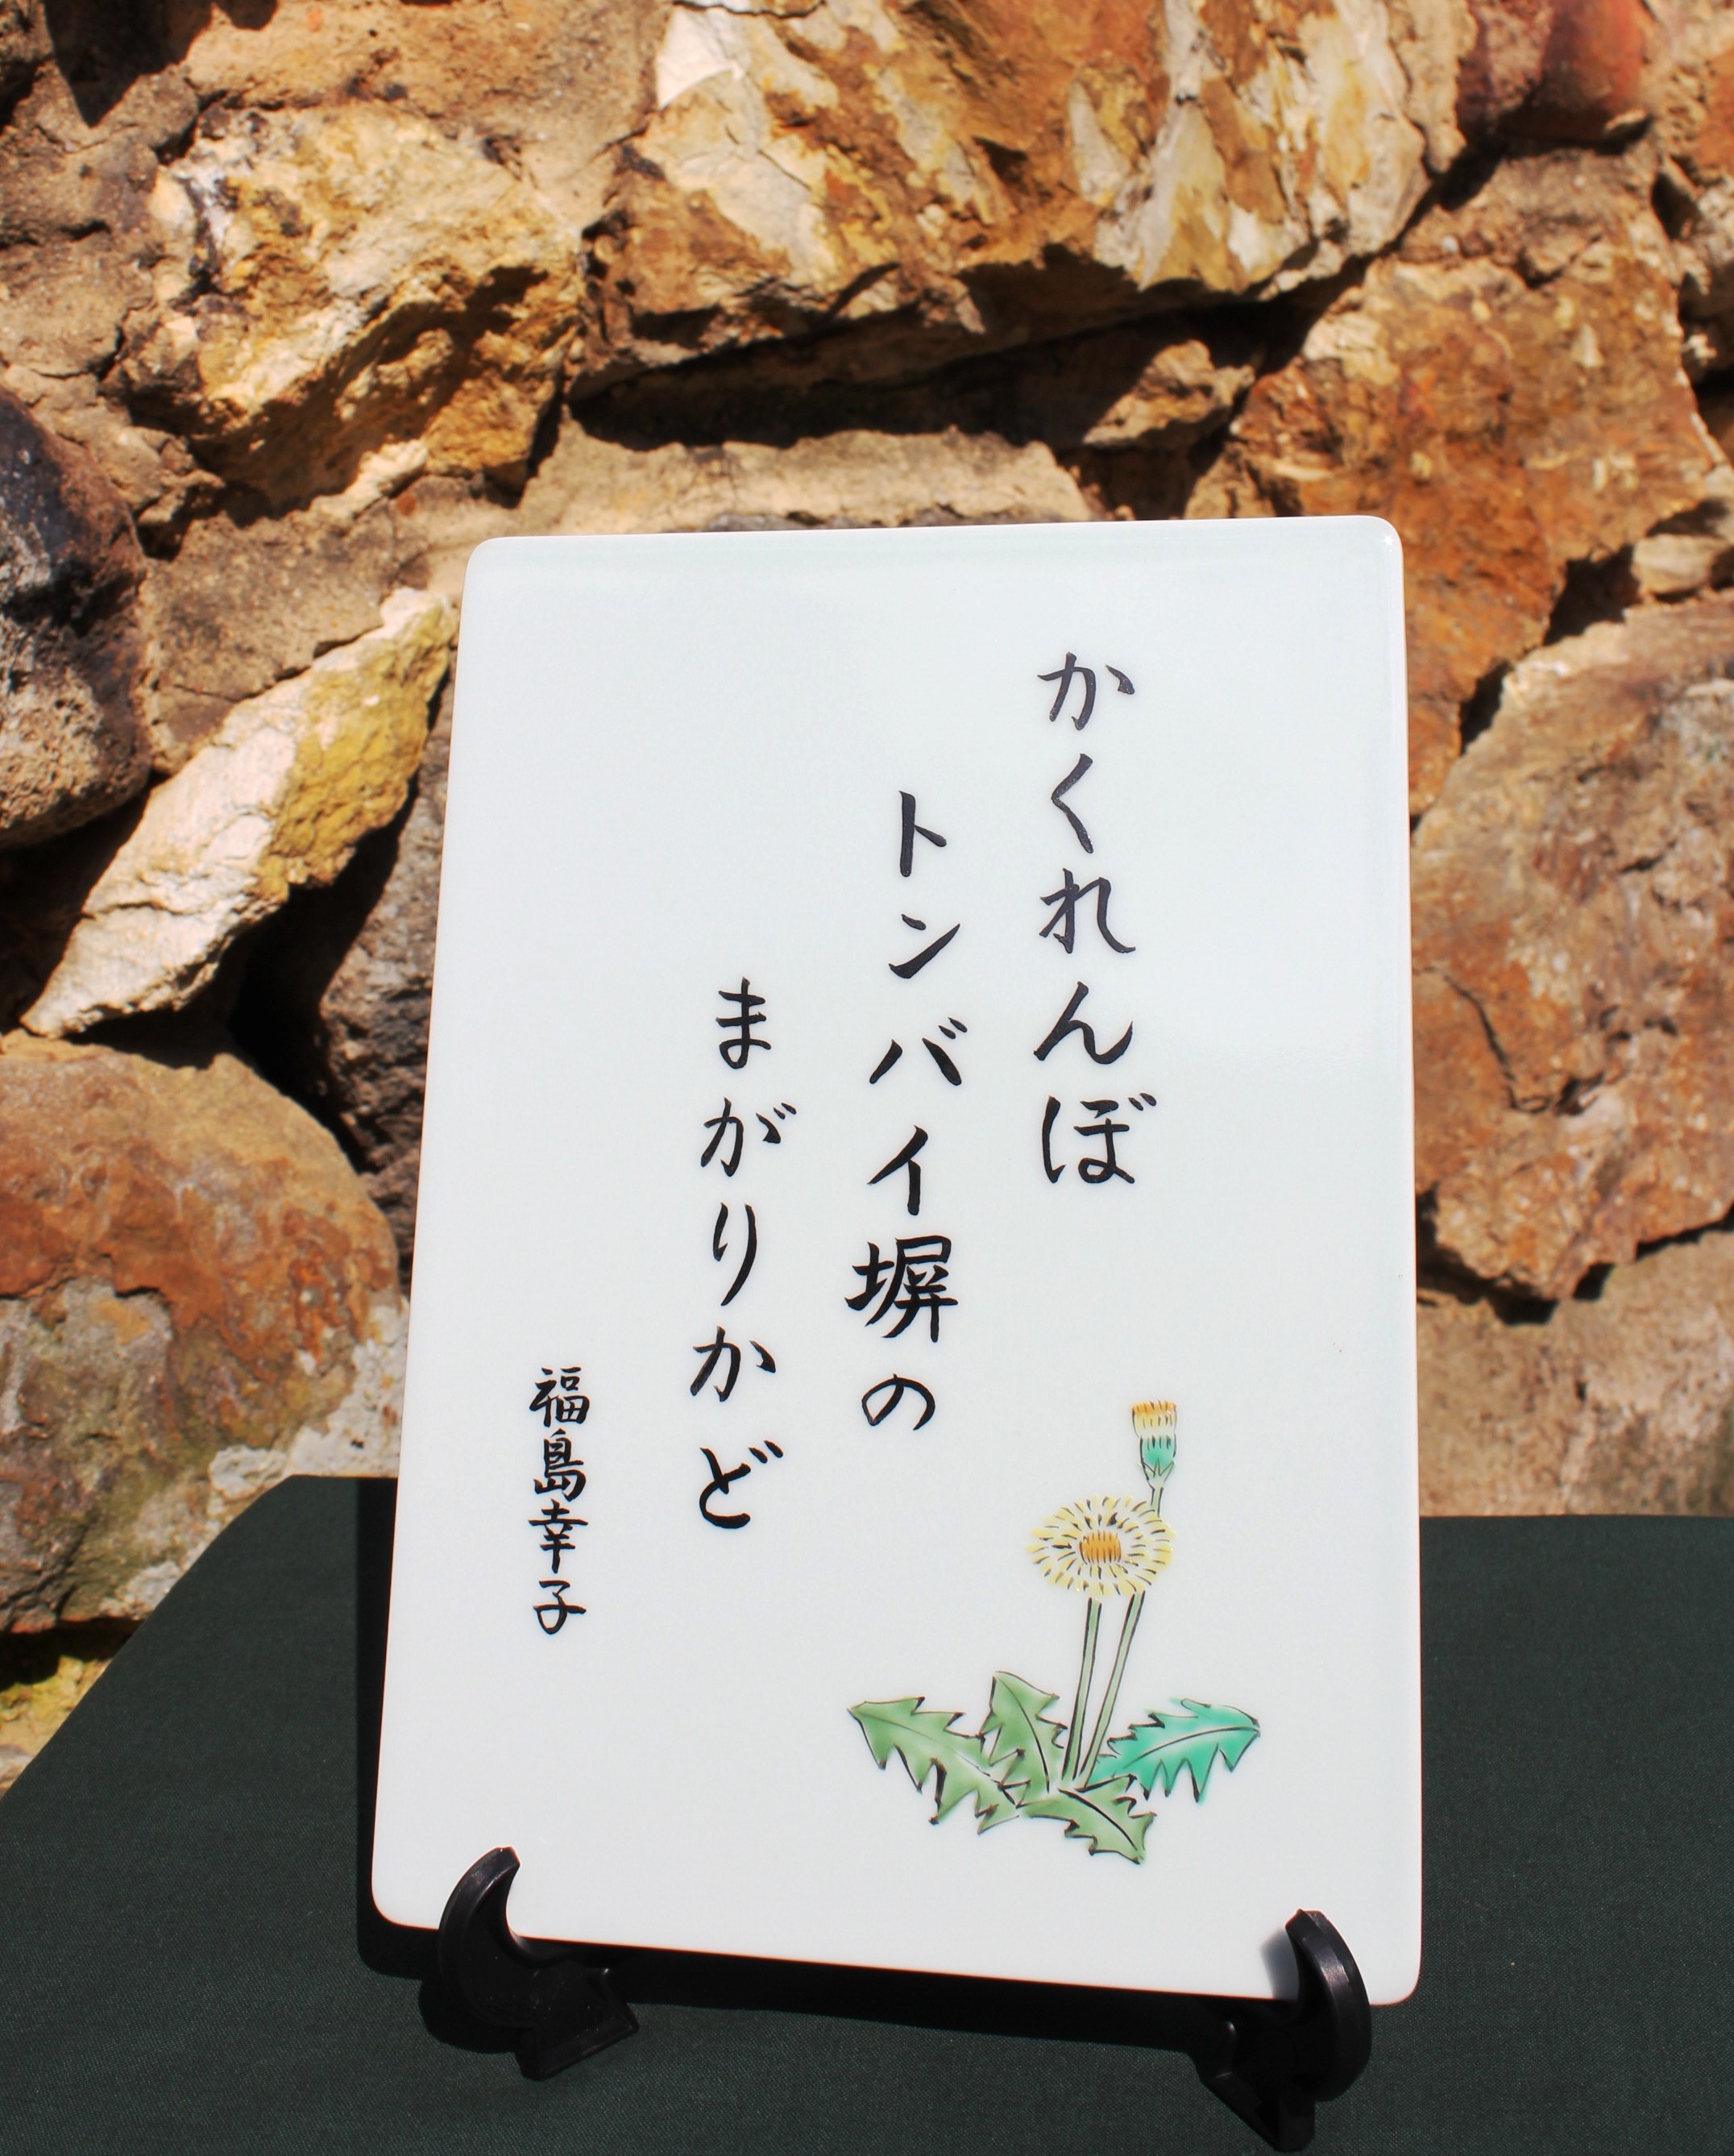 かくれんぼ
トンバイ塀の
まがりかど
福島幸子